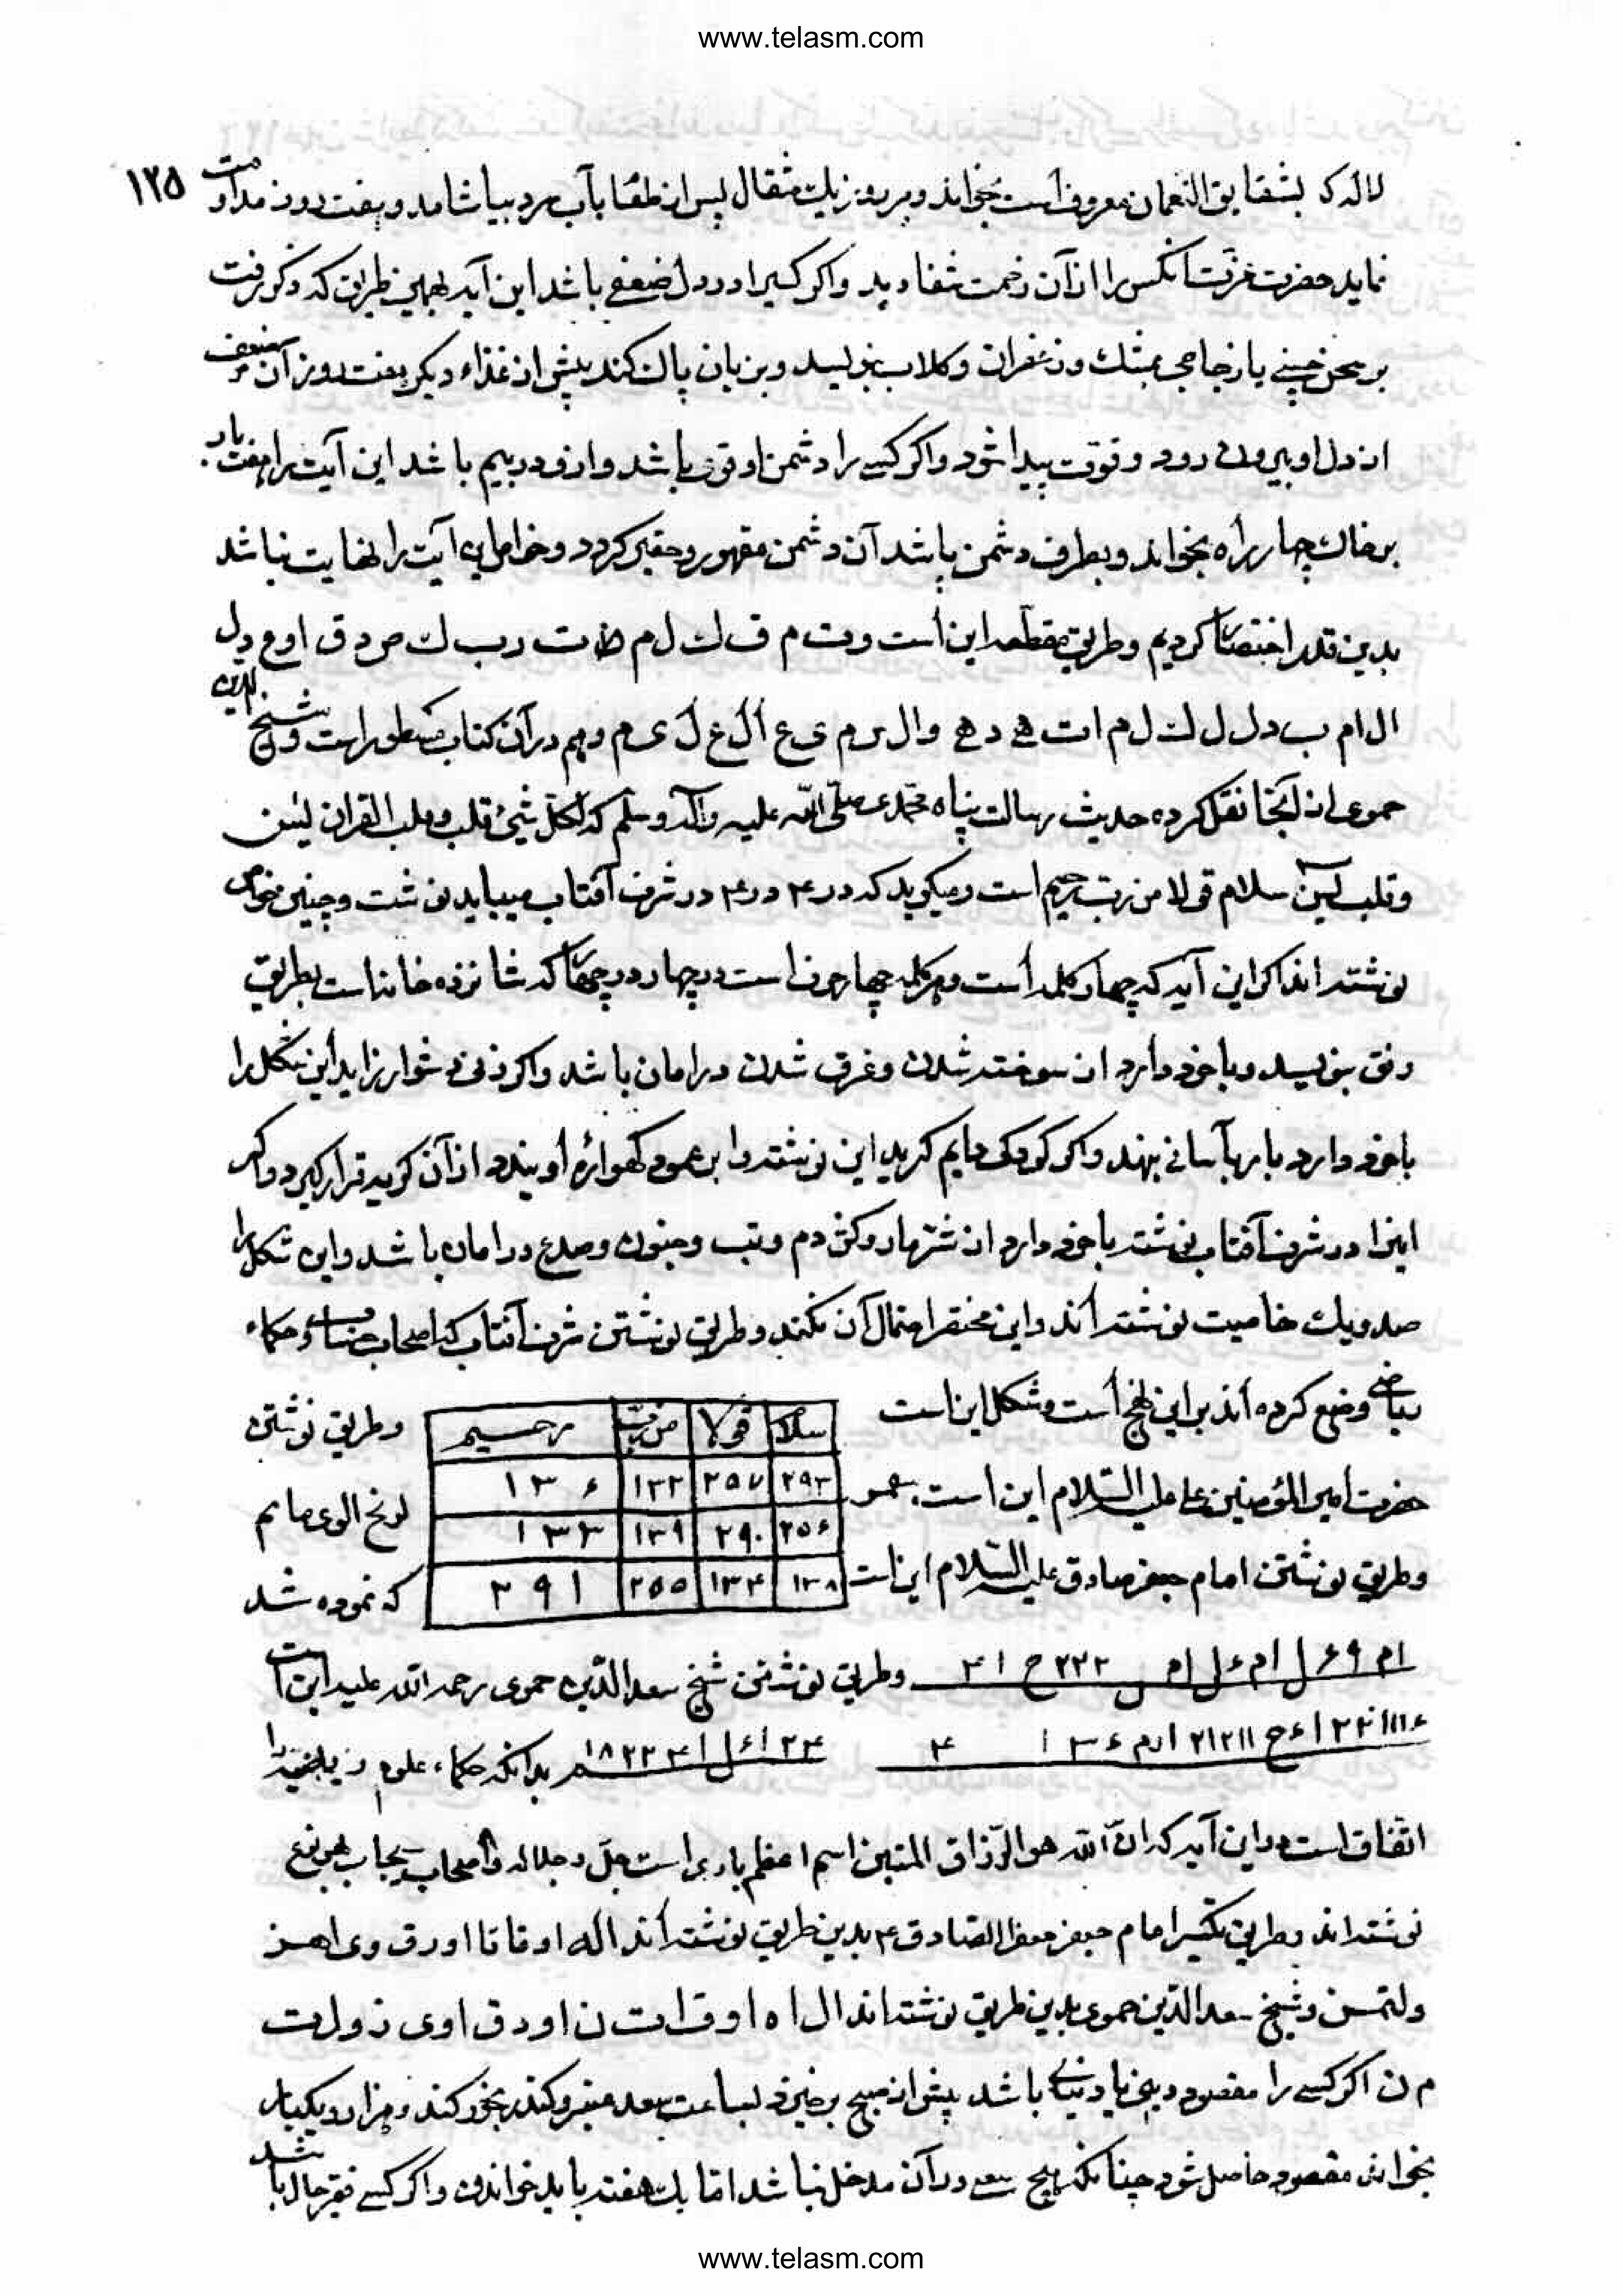 www.telasm.com
۱۲۵
لاله که بشقایق النعمان معروف است بخواند و هر روز یک مثقال پس از طعام با آب سرد بیاشامد و هفت روز مداومت
نماید حضرت عزت آنکس را از آن زحمت شفا دهد واکر کسیرا در دل ضعفی باشد این آیه بهمین طریق که ذکر رفت
بر صحن چینی یا زجاجی بمشک و زعفران و کلاب بنویسد و بزبان پاک کند پیش از غذاء دیکر هفت روز آن ضعف
از دل او بیرون رود و قوت پیدا شود واکر کسی را دشمن او قوی باشد و ازو در بیم باشد این آیت را هفت بار
بر خاک چهار راه بخواند و بطرف دشمن پاشد آن دشمن مقهور و حقیر کردد و خواص این آیت را نهایت نباشد
بدین قدر اختصار کردیم و طریق مقطعه این است و ت م ف ك ل م ة ت ر ب ك ص د ق ا و ع د ل
ال ام ب د ل ل ك ل م ات ه د ه و ال س م ی ع ال ع ل ی م و هم در آن کتاب مسطور است و شیخ
حموی از آنجا نقل کرده حدیث رسالت پناه محمدی صلی الله علیه وآله وسلم که لکل شیئ قلب و قلب القران یس
و قلب یس سلام قولا من رب رحیم است و میکوید که در ۴ در ۴ در شرف آفتاب میباید نوشت و چنین خواص
نوشته اند اکر این آیه که چهار کلمه است و هر کلمه چهار حرف است در چهار در چهار که شانزده خانه است بطریق
وفق بنویسد و با خود دارد از سوخته شدن و غرق شدن در امان باشد واکر زنی دشوار زاید این شکل را
با خود دارد بار بآسانی بنهد واکر کودکی دایم کرید این نوشته را بر عمود کهواره او بندد از آن کریه قرار کیرد واکر
اینرا در شرف آفتاب نوشته با خود دارد از شر مار و کژدم و تب و جنون و صدع در امان باشد و این شکل را
صد و یک خاصیت نوشته اند و این مختصر احتمال آن نکند و طریق نوشتن شرف آفتاب که اصحاب حساب و حکماء
ریاضی وضع کرده اند بر این نهج است و شکل این است
سلام قولا من رب رحیم
۲۹۳ ۲۵۷ ۱۳۲ ۱۳۶
۲۵۶ ۲۹۰ ۱۳۹ ۱۳۳
۱۳۸ ۱۳۴ ۲۵۵ ۲۹۱
و طریق نوشتن
حضرت امیر المؤمنین علی علیه السلام این است
و طریق نوشتن امام جعفر صادق علیه السلام این است
که نموده شد
و طریق نوشتن شیخ سعد الدین حموی رحمه الله علیه این است
بدانکه حکماء علوم ریاضی را
اتفاق است در این آیه که ان الله هو الرزاق المتین اسم اعظم باری است جل و جلاله و اصحاب
نوشته اند و طریق تکسیر امام جعفر الصادق ۴ بدین طریق نوشته اند
و شیخ سعد الدین حموی بدین طریق نوشته اند ال ا ه ا و ق ات ن ا و د ق ا وی ذ و ل ت
م ن اکر کسی را مقصود دینی یا دنیائی باشد پیش از صبح برخیزد بساعت سعد بخور کند و هزار و یکبار
بخواند مقصود حاصل شود چنانکه هیچ سعی در آن مدخل نباشد اما یک هفته باید خواندن واکر کسی فقیر حال باشد
www.telasm.com